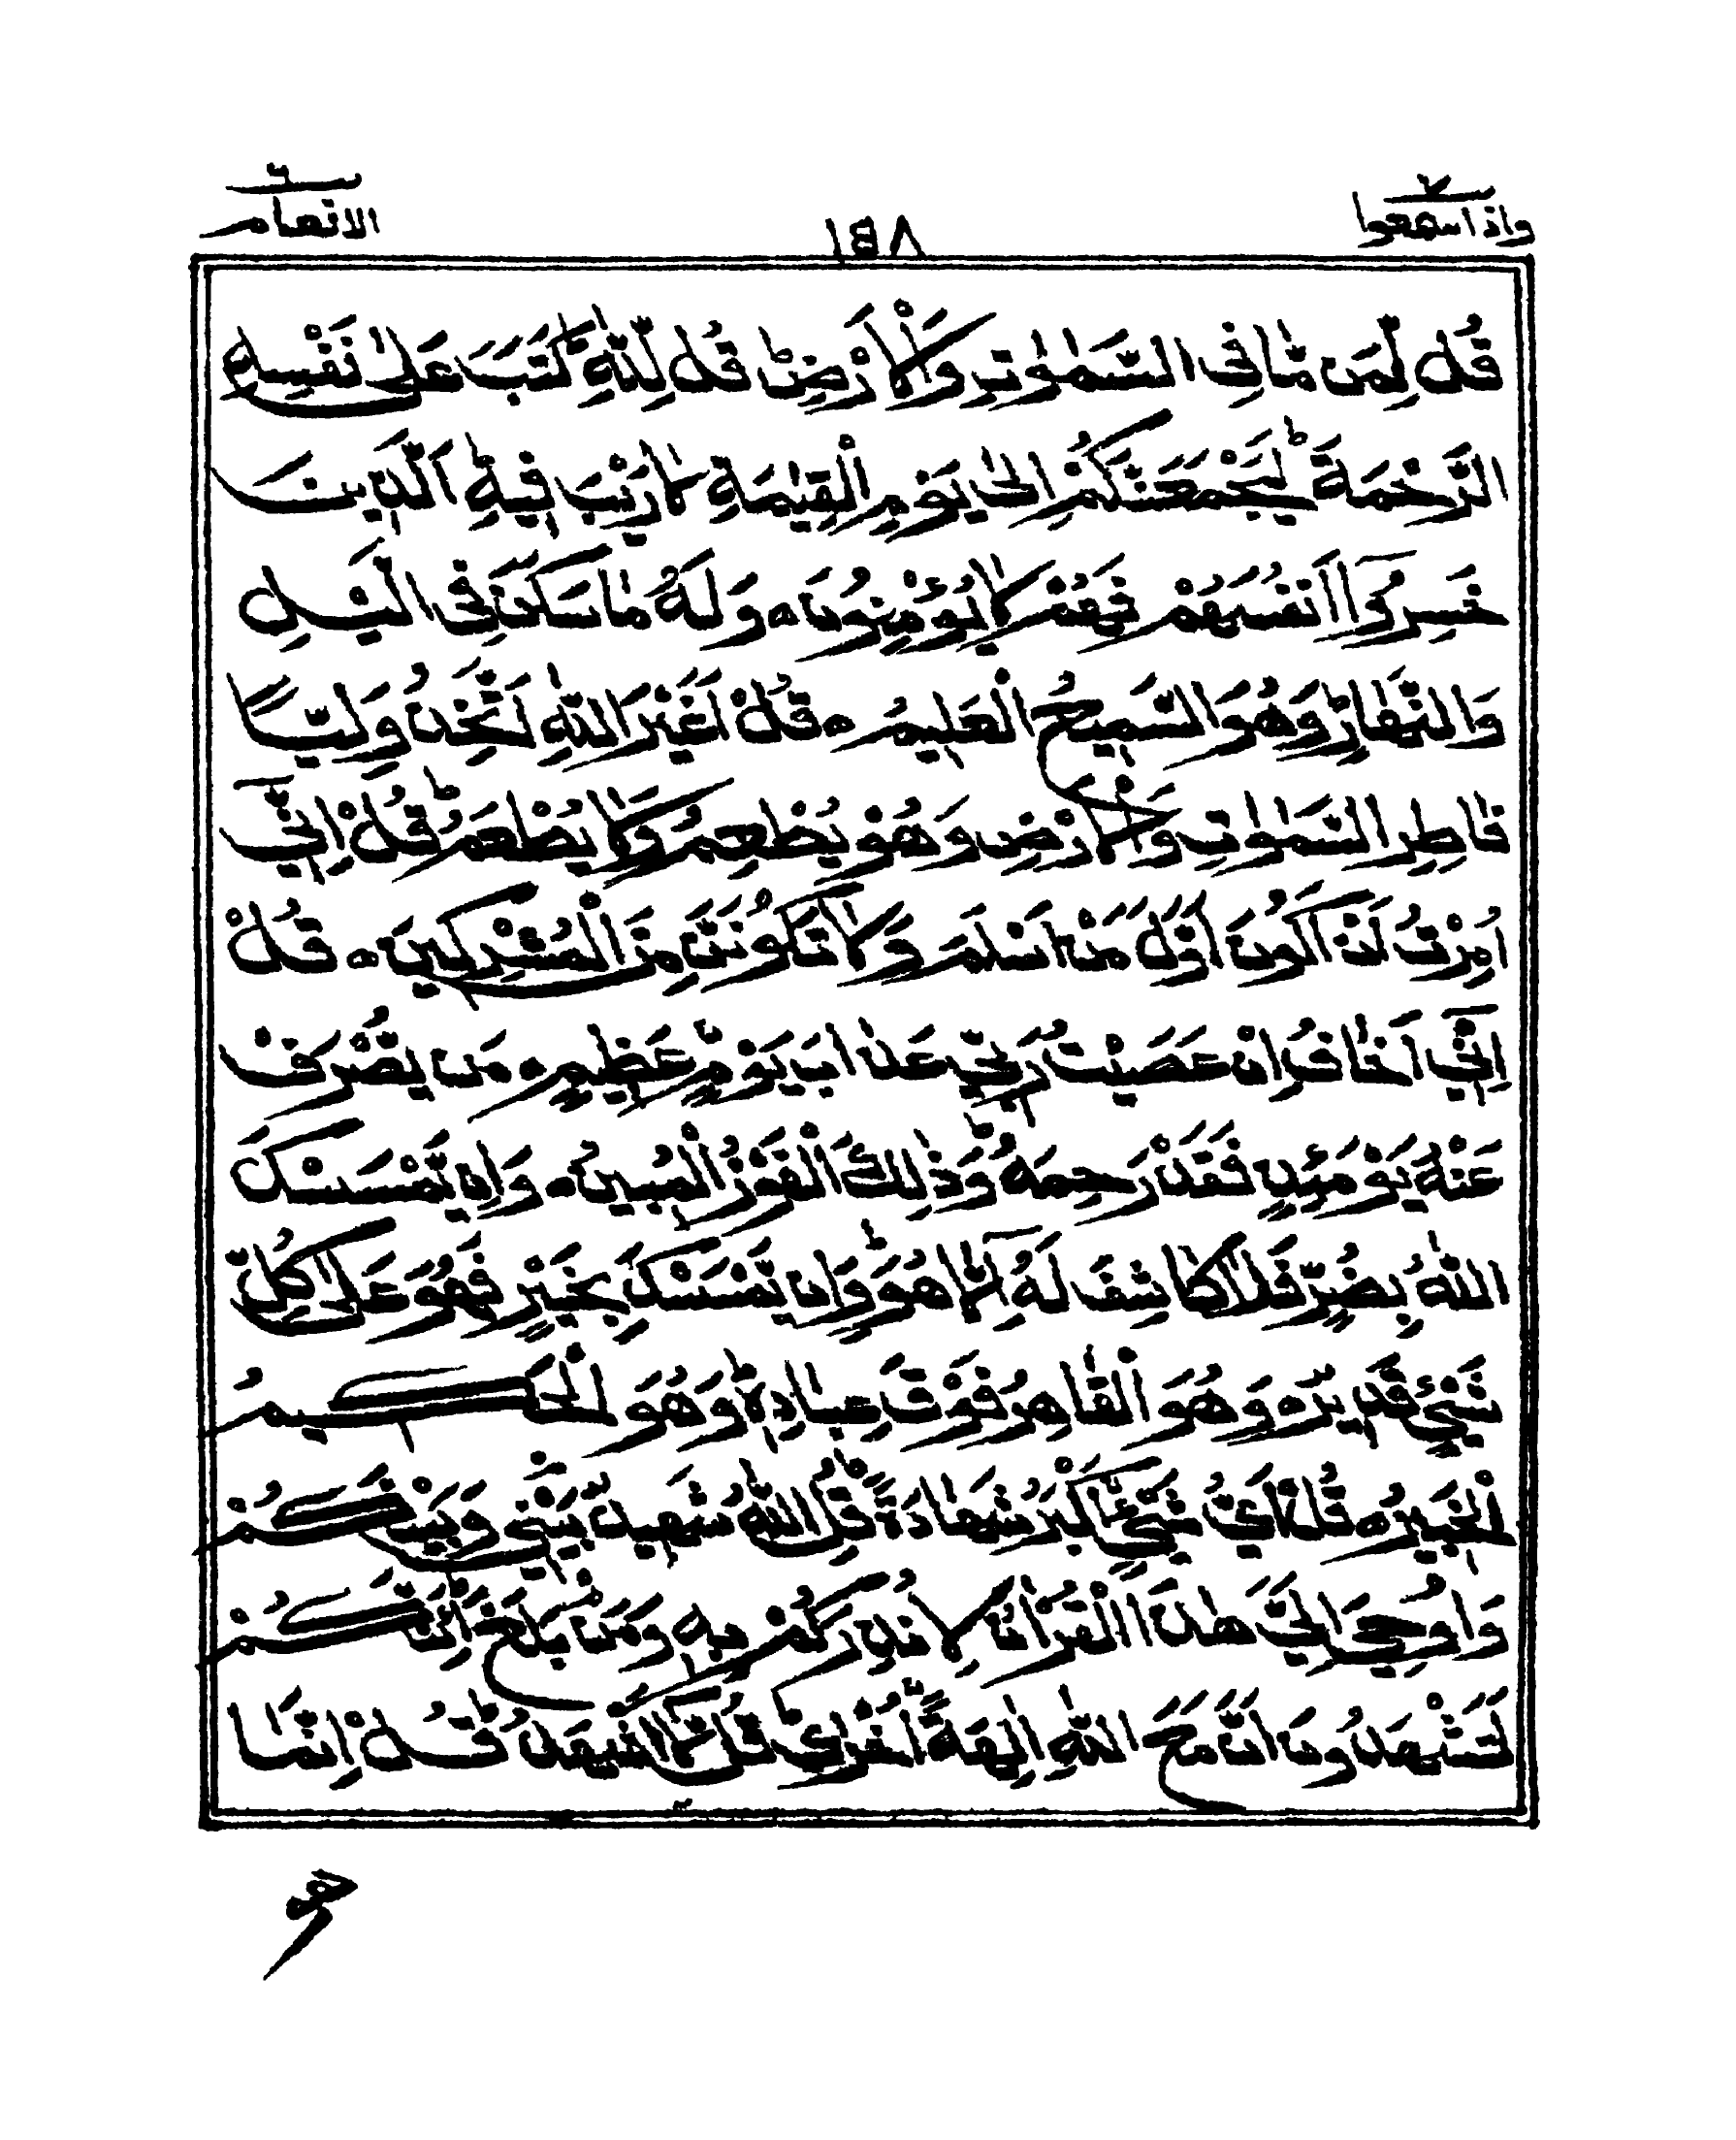 واذا سمعوا ٧
١٤٨
الانعام ٦
قُلْ لِّمَنْ مَّا فِى السَّمٰوٰتِ وَالْاَرْضِؕ قُلْ لِّلّٰهِؕ كَتَبَ عَلٰى نَفْسِهِ
الرَّحْمَةَؕ لَيَجْمَعَنَّكُمْ اِلٰى يَوْمِ الْقِيٰمَةِ لَا رَيْبَ فِيْهِؕ اَلَّذِيْنَ
خَسِرُوْۤا اَنْفُسَهُمْ فَهُمْ لَا يُؤْمِنُوْنَ ه وَلَهٗ مَا سَكَنَ فِى الَّيْلِ
وَالنَّهَارِؕ وَهُوَ السَّمِيْعُ الْعَلِيْمُ ه قُلْ اَغَيْرَ اللّٰهِ اَتَّخِذُ وَلِيًّا
فَاطِرِ السَّمٰوٰتِ وَالْاَرْضِ وَهُوَ يُطْعِمُ وَلَا يُطْعَمُؕ قُلْ اِنِّىْۤ
اُمِرْتُ اَنْ اَكُوْنَ اَوَّلَ مَنْ اَسْلَمَ وَلَا تَكُوْنَنَّ مِنَ الْمُشْرِكِيْنَ ه قُلْ
اِنِّىْۤ اَخَافُ اِنْ عَصَيْتُ رَبِّىْ عَذَابَ يَوْمٍ عَظِيْمٍ ه مَنْ يُّصْرَفْ
عَنْهُ يَوْمَئِذٍ فَقَدْ رَحِمَهٗؕ وَذٰلِكَ الْفَوْزُ الْمُبِيْنُ ه وَاِنْ يَّمْسَسْكَ
اللّٰهُ بِضُرٍّ فَلَا كَاشِفَ لَهٗۤ اِلَّا هُوَؕ وَاِنْ يَّمْسَسْكَ بِخَيْرٍ فَهُوَ عَلٰى كُلِّ
شَىْءٍ قَدِيْرٌ ه وَهُوَ الْقَاهِرُ فَوْقَ عِبَادِهٖؕ وَهُوَ الْحَكِيْمُ
الْخَبِيْرُ ه قُلْ اَىُّ شَىْءٍ اَكْبَرُ شَهَادَةًؕ قُلِ اللّٰهُ شَهِيْدٌۢ بَيْنِىْ وَبَيْنَكُمْ
وَاُوْحِىَ اِلَىَّ هٰذَا الْقُرْاٰنُ لِاُنْذِرَكُمْ بِهٖ وَمَنْۢ بَلَغَؕ اَئِنَّكُمْ
لَتَشْهَدُوْنَ اَنَّ مَعَ اللّٰهِ اٰلِهَةً اُخْرٰىؕ قُلْ لَّاۤ اَشْهَدُؕ قُلْ اِنَّمَا
هو